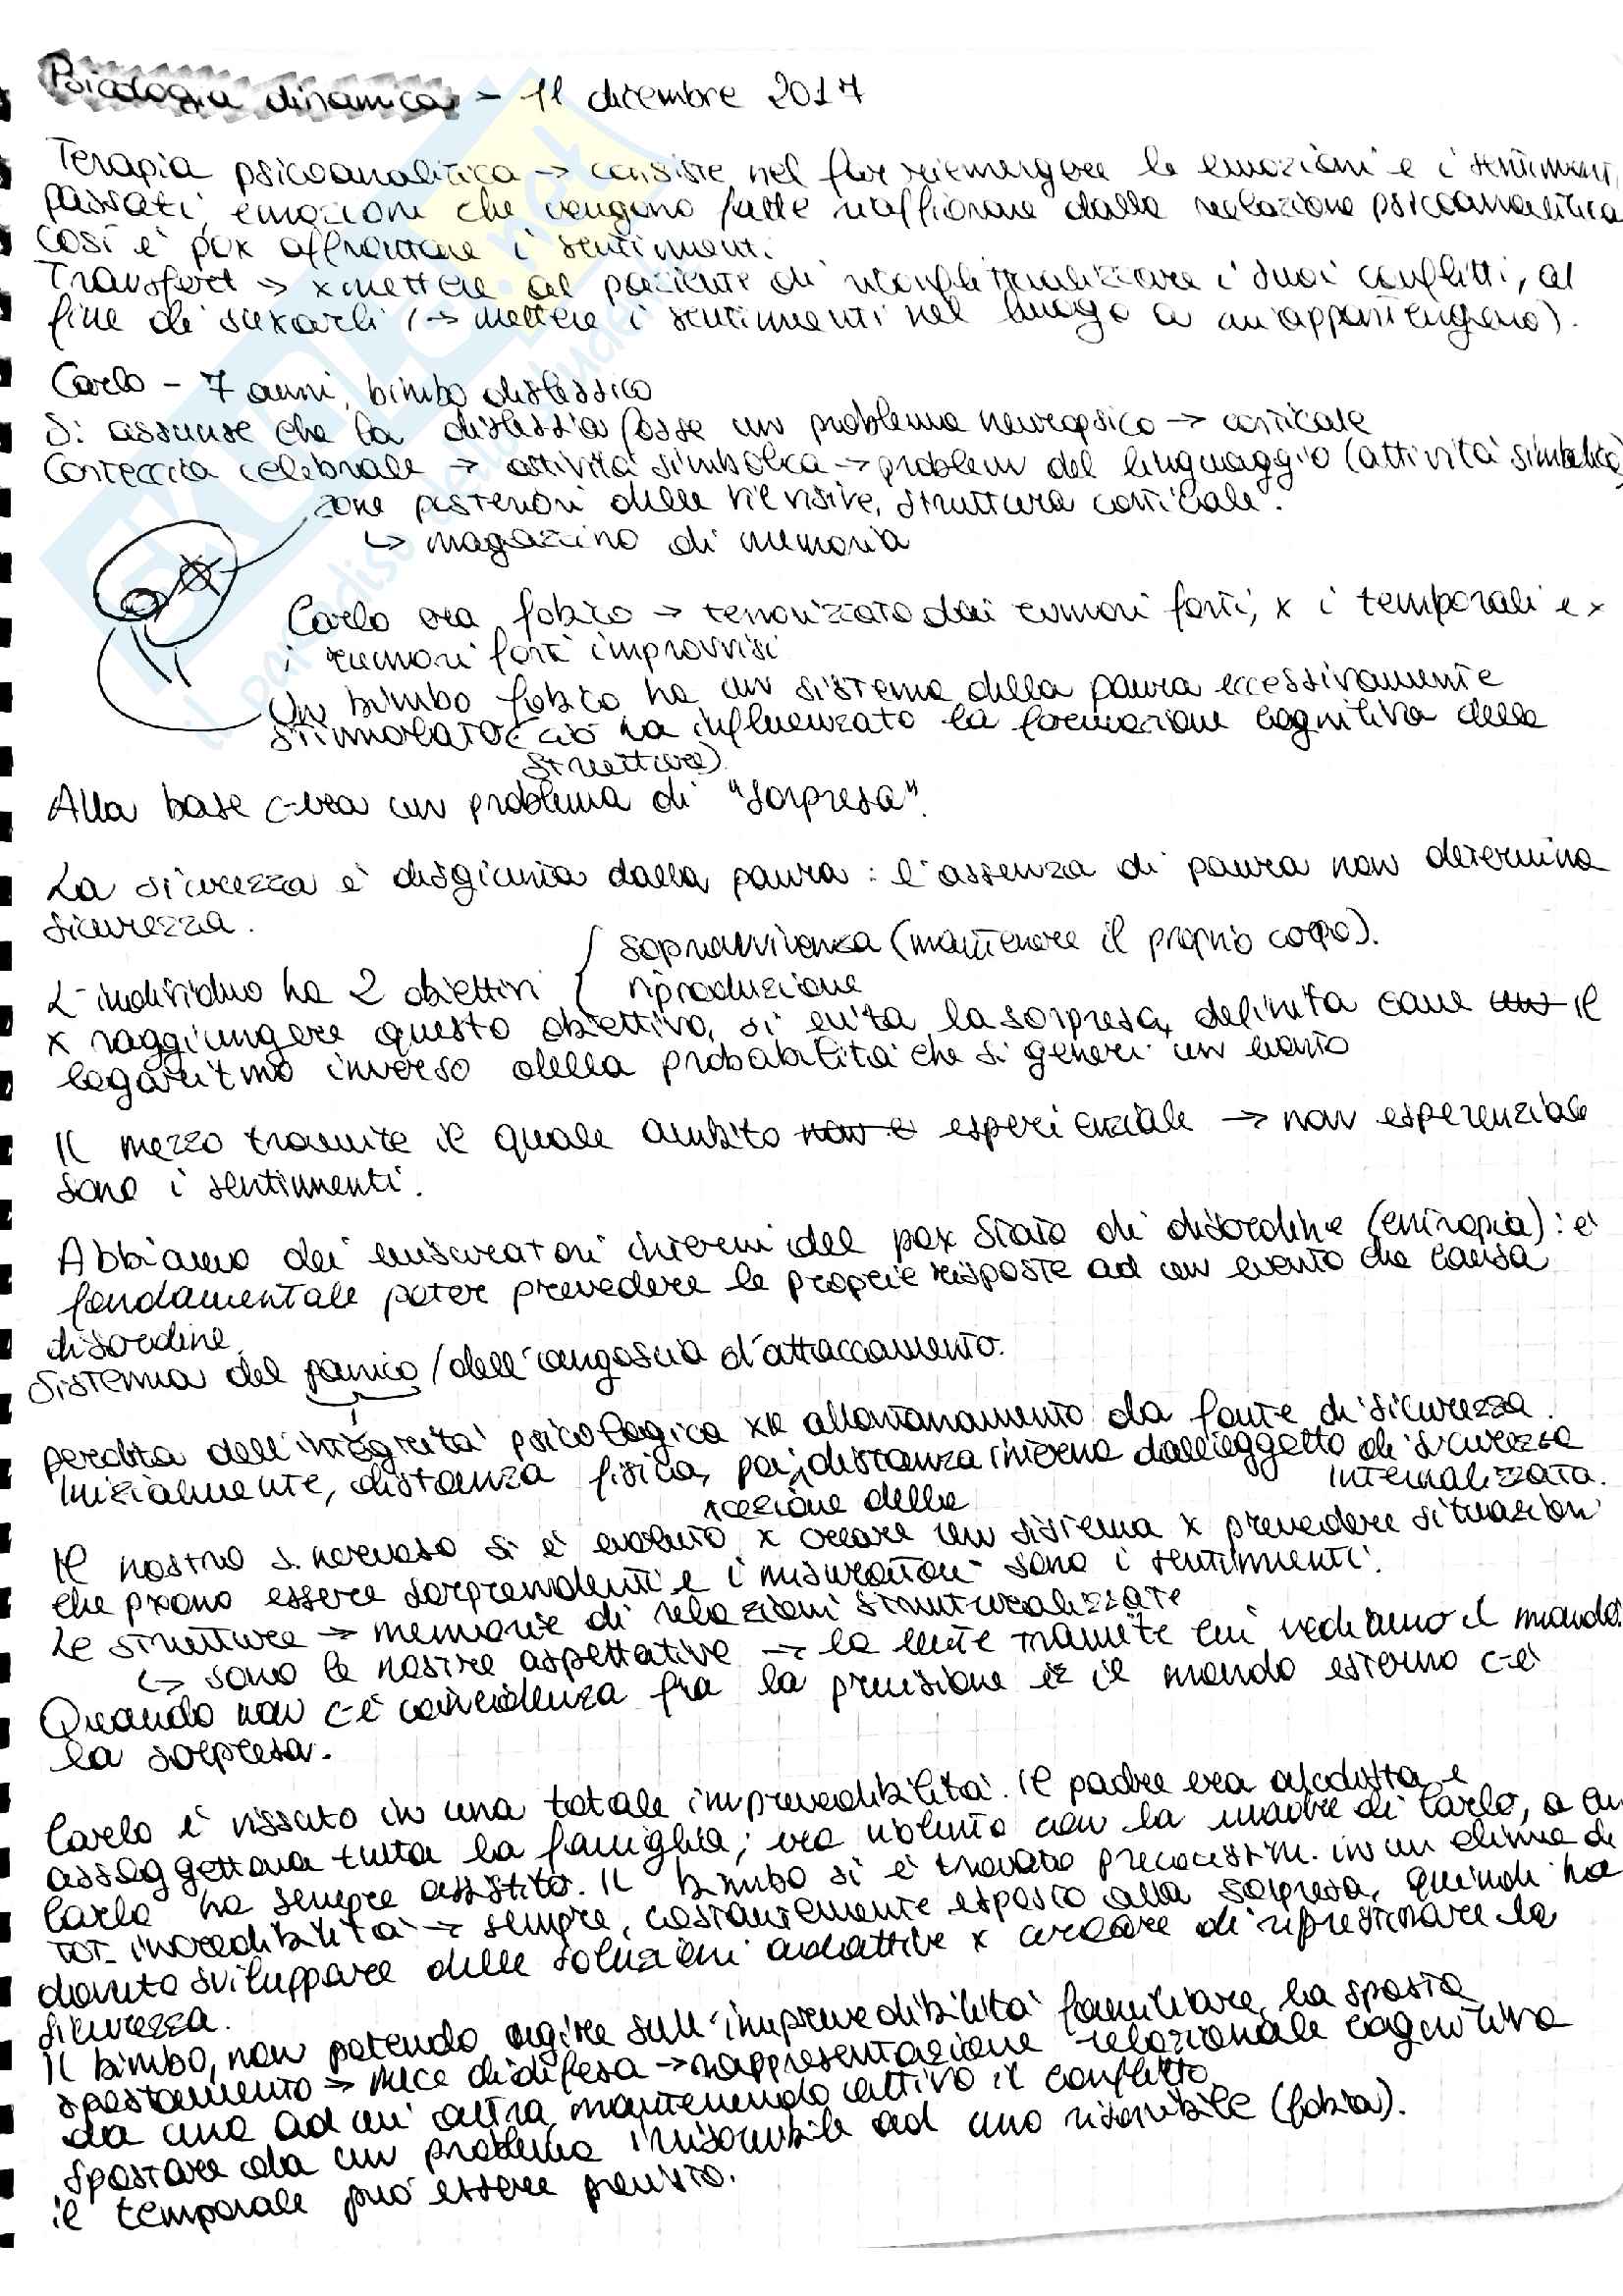 Psicologia dinamica - 11 dicembre 2017
Terapia psicoanalitica → consiste nel far riemergere le emozioni e i sentimenti
passati, emozioni che vengono fatte riaffiorare dalla relazione psicoanalitica
così è pox affrontare i sentimenti.
Transfert → xmettere al paziente di riconflittualizzare i suoi conflitti, al
fine di suxarli (→ mettere i sentimenti nel luogo a cui appartengono).
Carlo - 7 anni, bimbo dislessico
Si assunse che la dislessia fosse un problema neuropsico → corticale
Corteccia celebrale → attività simbolica → problemi del linguaggio (attività simbolica)
zone posteriori delle vie visive, struttura corticale.
↳ magazzino di memoria
Carlo era fobico → terrorizzato dai rumori forti, x i temporali e x
i rumori forti improvvisi
Un bimbo fobico ha un sistema della paura eccessivamente
stimolato (ciò ha influenzato la formazione cognitiva delle
strutture)
Alla base c'era un problema di "sorpresa".
La sicurezza è disgiunta dalla paura: l'assenza di paura non determina
sicurezza.
L'individuo ha 2 obiettivi { sopravvivenza (mantenere il proprio corpo).
riproduzione
x raggiungere questo obiettivo, si evita la sorpresa, definita come un il
logaritmo inverso della probabilità che si generi un evento
Il mezzo tramite il quale ambito non è esperienziale → non esperenziale
sono i sentimenti.
Abbiamo dei misuratori interni del pox stato di disordine (entropia): è
fondamentale poter prevedere le proprie risposte ad un evento che causa
disordine.
Sistema del panico / dell'angoscia d'attaccamento.
perdita dell'integrità psicologica xk allontanamento da fonte di sicurezza.
Inizialmente, distanza fisica, poi, distanza interna dall'oggetto di sicurezza
internalizzata.
Il nostro s. nervoso si è evoluto x creare un sistema x prevedere situazioni
che pxono essere sorprendenti e i misuratori sono i sentimenti.
Le strutture → memorie di relazioni strutturalizzate
↳ sono le nostre aspettative → la lente tramite cui vediamo il mondo.
Quando non c'è coincidenza fra la previsione e il mondo esterno c'è
la sorpresa.
Carlo è vissuto in una totale imprevedibilità. Il padre era alcolista e
assoggettava tutta la famiglia; era violento con la madre di Carlo, a cui
Carlo ha sempre assistito. Il bimbo si è trovato precocestm. in un clima di
tot. incredibilità → sempre, costantemente esposto alla sorpresa, quindi ha
dovuto sviluppare delle soluzioni adattive x cercare di ripristinare la
sicurezza.
Il bimbo, non potendo agire sull'imprevedibilità familiare, ha sposta
spostamento → mecc di difesa → rappresentazione relazionale cognitiva
da una ad un' altra, mantenendo attivo il conflitto.
Spostare da un problema irrisolvibile ad uno risolvibile (fobia).
il temporale può essere previsto.